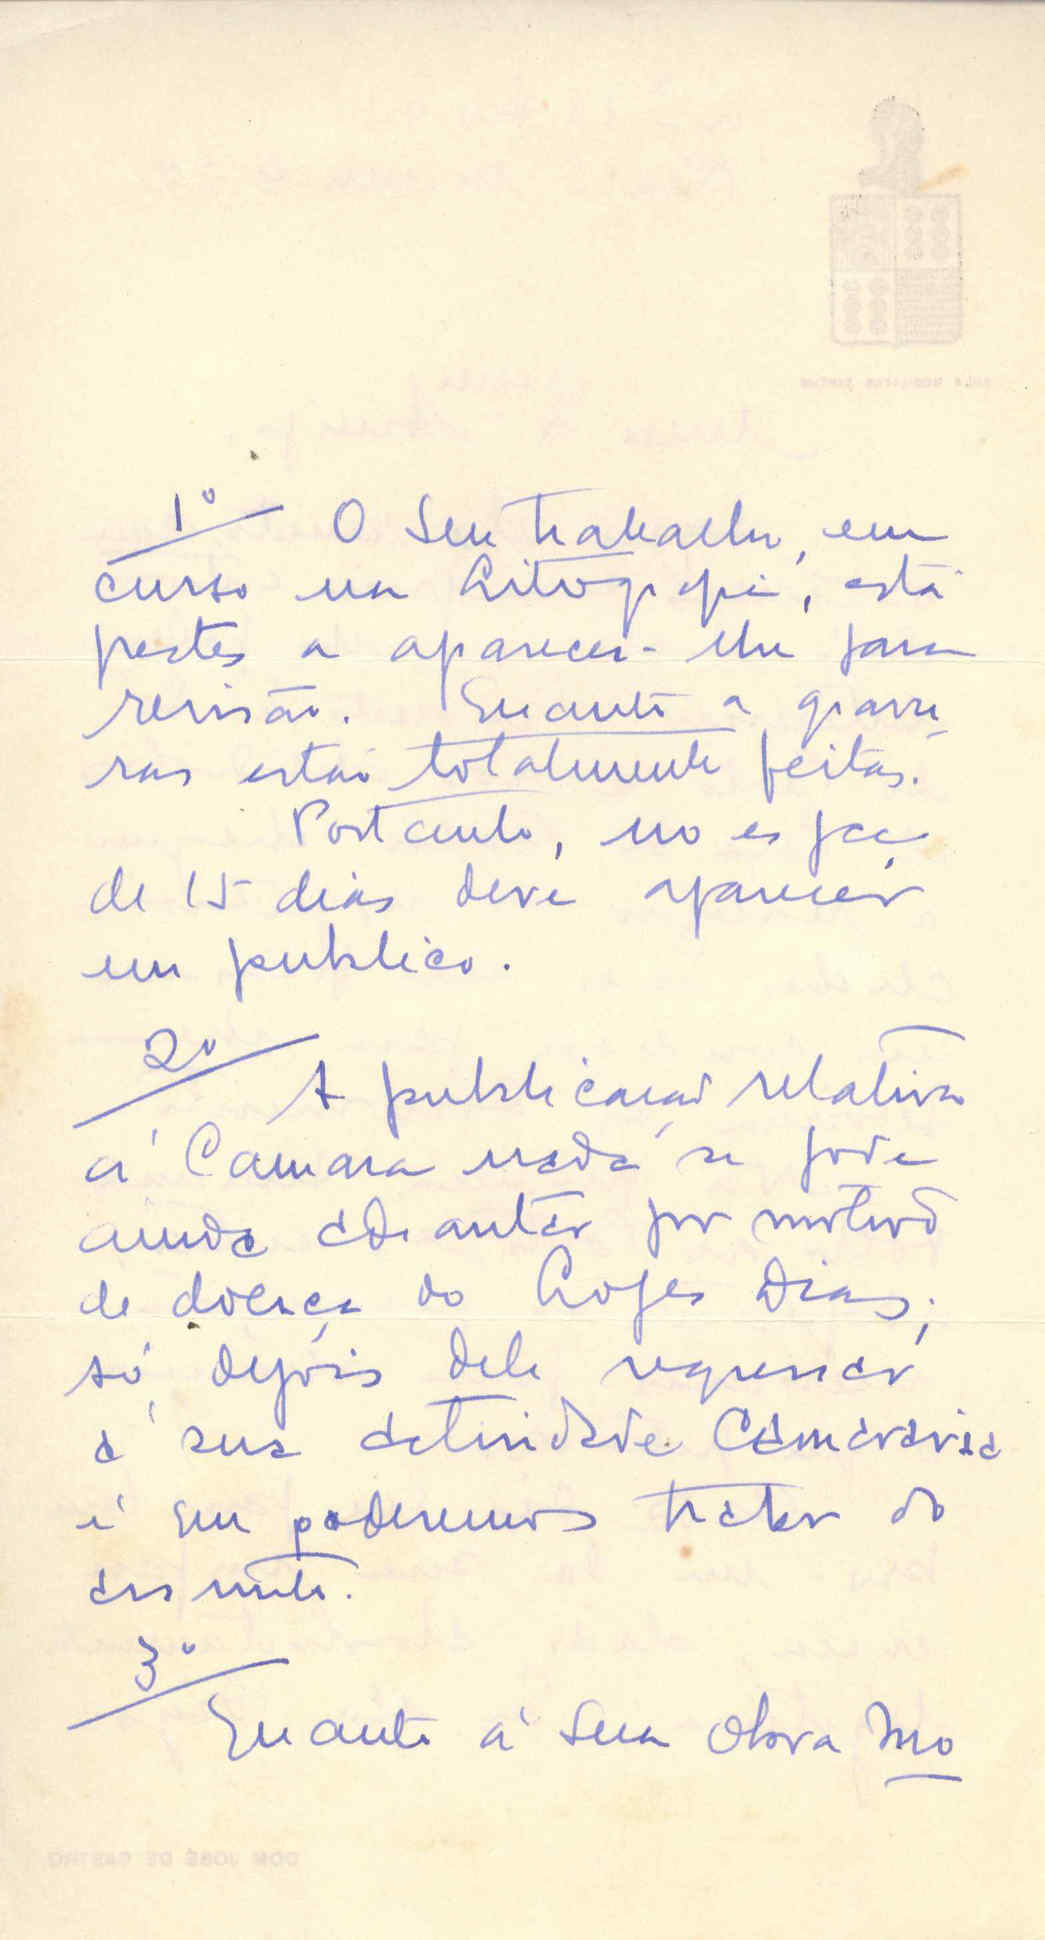 1º O seu trabalho, em
curso na Litografia, está
prestes a aparecer-lhe para
revisão. Quanto a gravu
ras estão totalmente feitas.
Portanto, no espaço
de 15 dias deve aparecer
em publico.
2º A publicação relativa
á Camara nada se pode
ainda adeantar por motivo
de doença do Lopes Dias;
só depois dele regressar
á sua actividade Camararia
é que poderemos tratar do
assunto.
3º
Quanto á sua obra Mo
DOM JOSÉ DE CASTRO